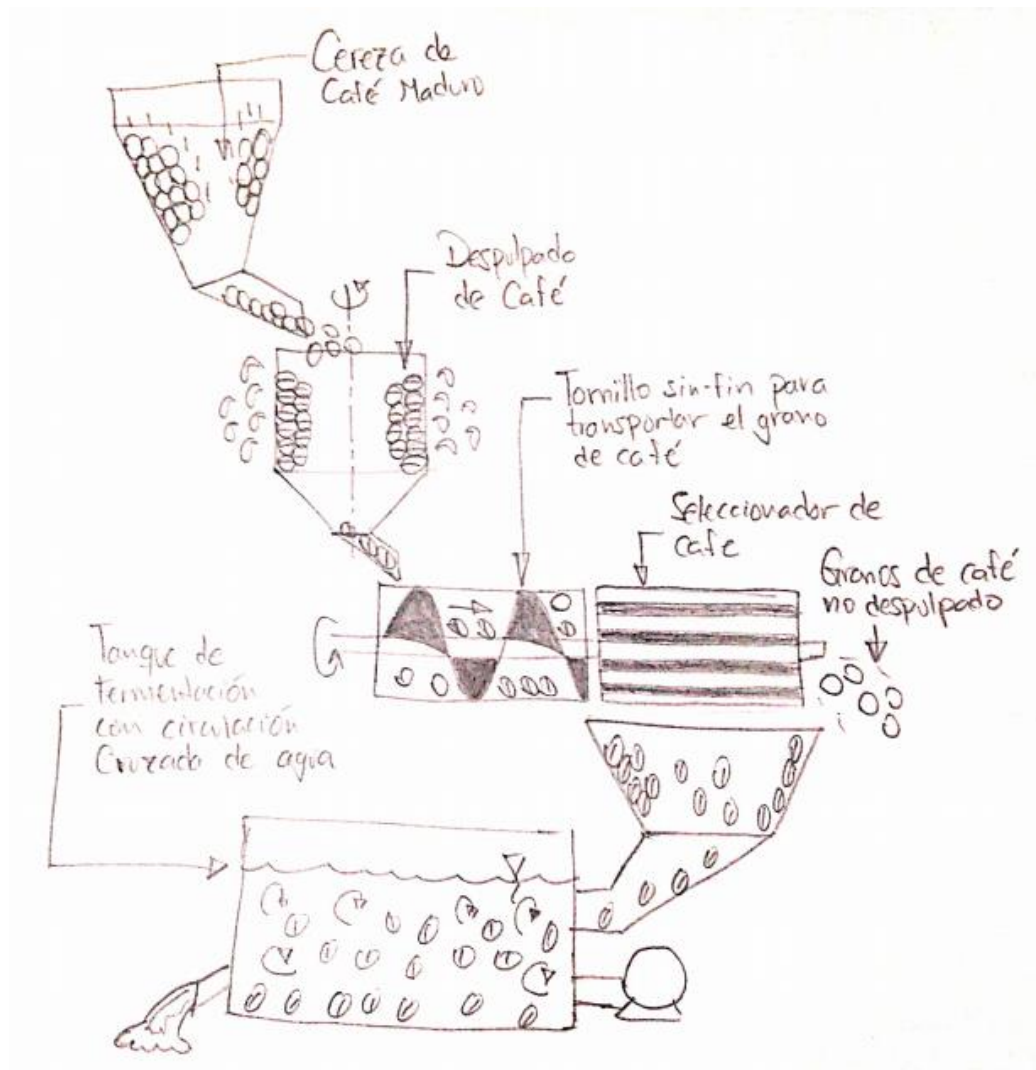 Cereza de
Café Maduro
Despulpado
de Café
Tornillo sin-fin para
transportar el grano
de café
Seleccionador de
cafe
Granos de café
no despulpado
Tanque de
fermentación
con circulación
Cruzado de agua